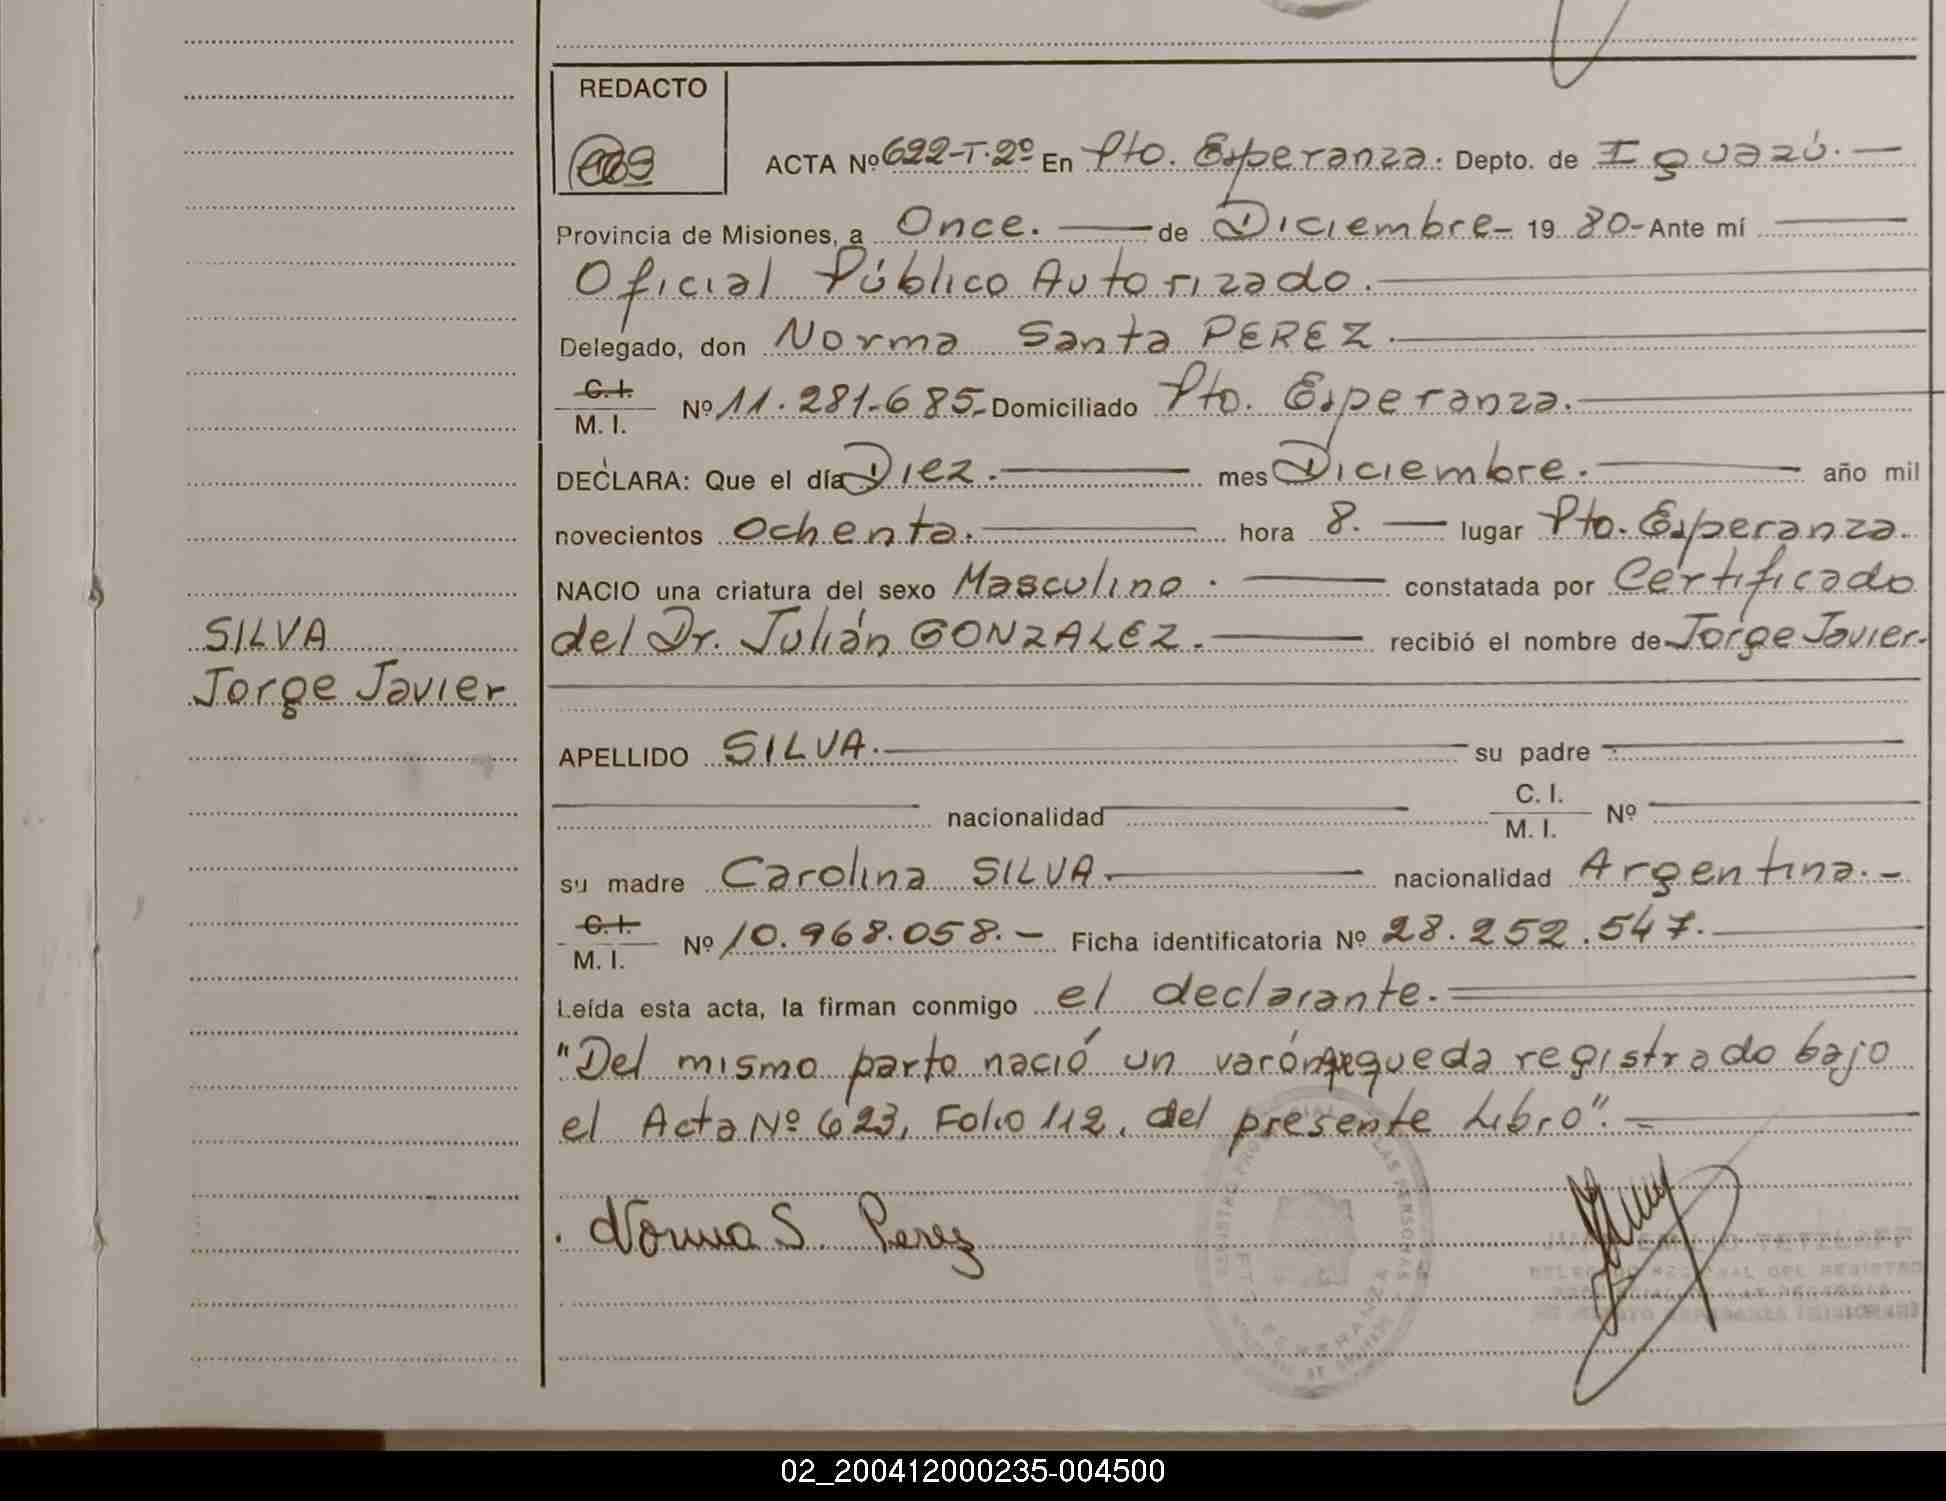 REDACTO
ACTA Nº 622-T.2º En Pto. Esperanza. Depto. de Iguazú.
Provincia de Misiones, a Once. de Diciembre 1980- Ante mí
Oficial Público Autorizado.
Delegado, don Norma Santa PEREZ.
C.I.
M. I. Nº 11.281.685 Domiciliado Pto. Esperanza.
DECLARA: Que el día Diez. mes Diciembre. año mil
novecientos Ochenta. hora 8. lugar Pto. Esperanza.
NACIO una criatura del sexo Masculino. constatada por Certificado
del Dr. Julián GONZALEZ. recibió el nombre de Jorge Javier.
SILVA
Jorge Javier
APELLIDO SILVA. su padre
nacionalidad C. I.
M. I. Nº
su madre Carolina SILVA. nacionalidad Argentina.-
C.I.
M. I. Nº 10.968.058.- Ficha identificatoria Nº 28.252.547.
Leída esta acta, la firman conmigo el declarante.
"Del mismo parto nació un varón queda registrado bajo
el Acta Nº 623, Folio 112, del presente Libro".
Norma S. Perez
ESPERANZA
02_200412000235-004500